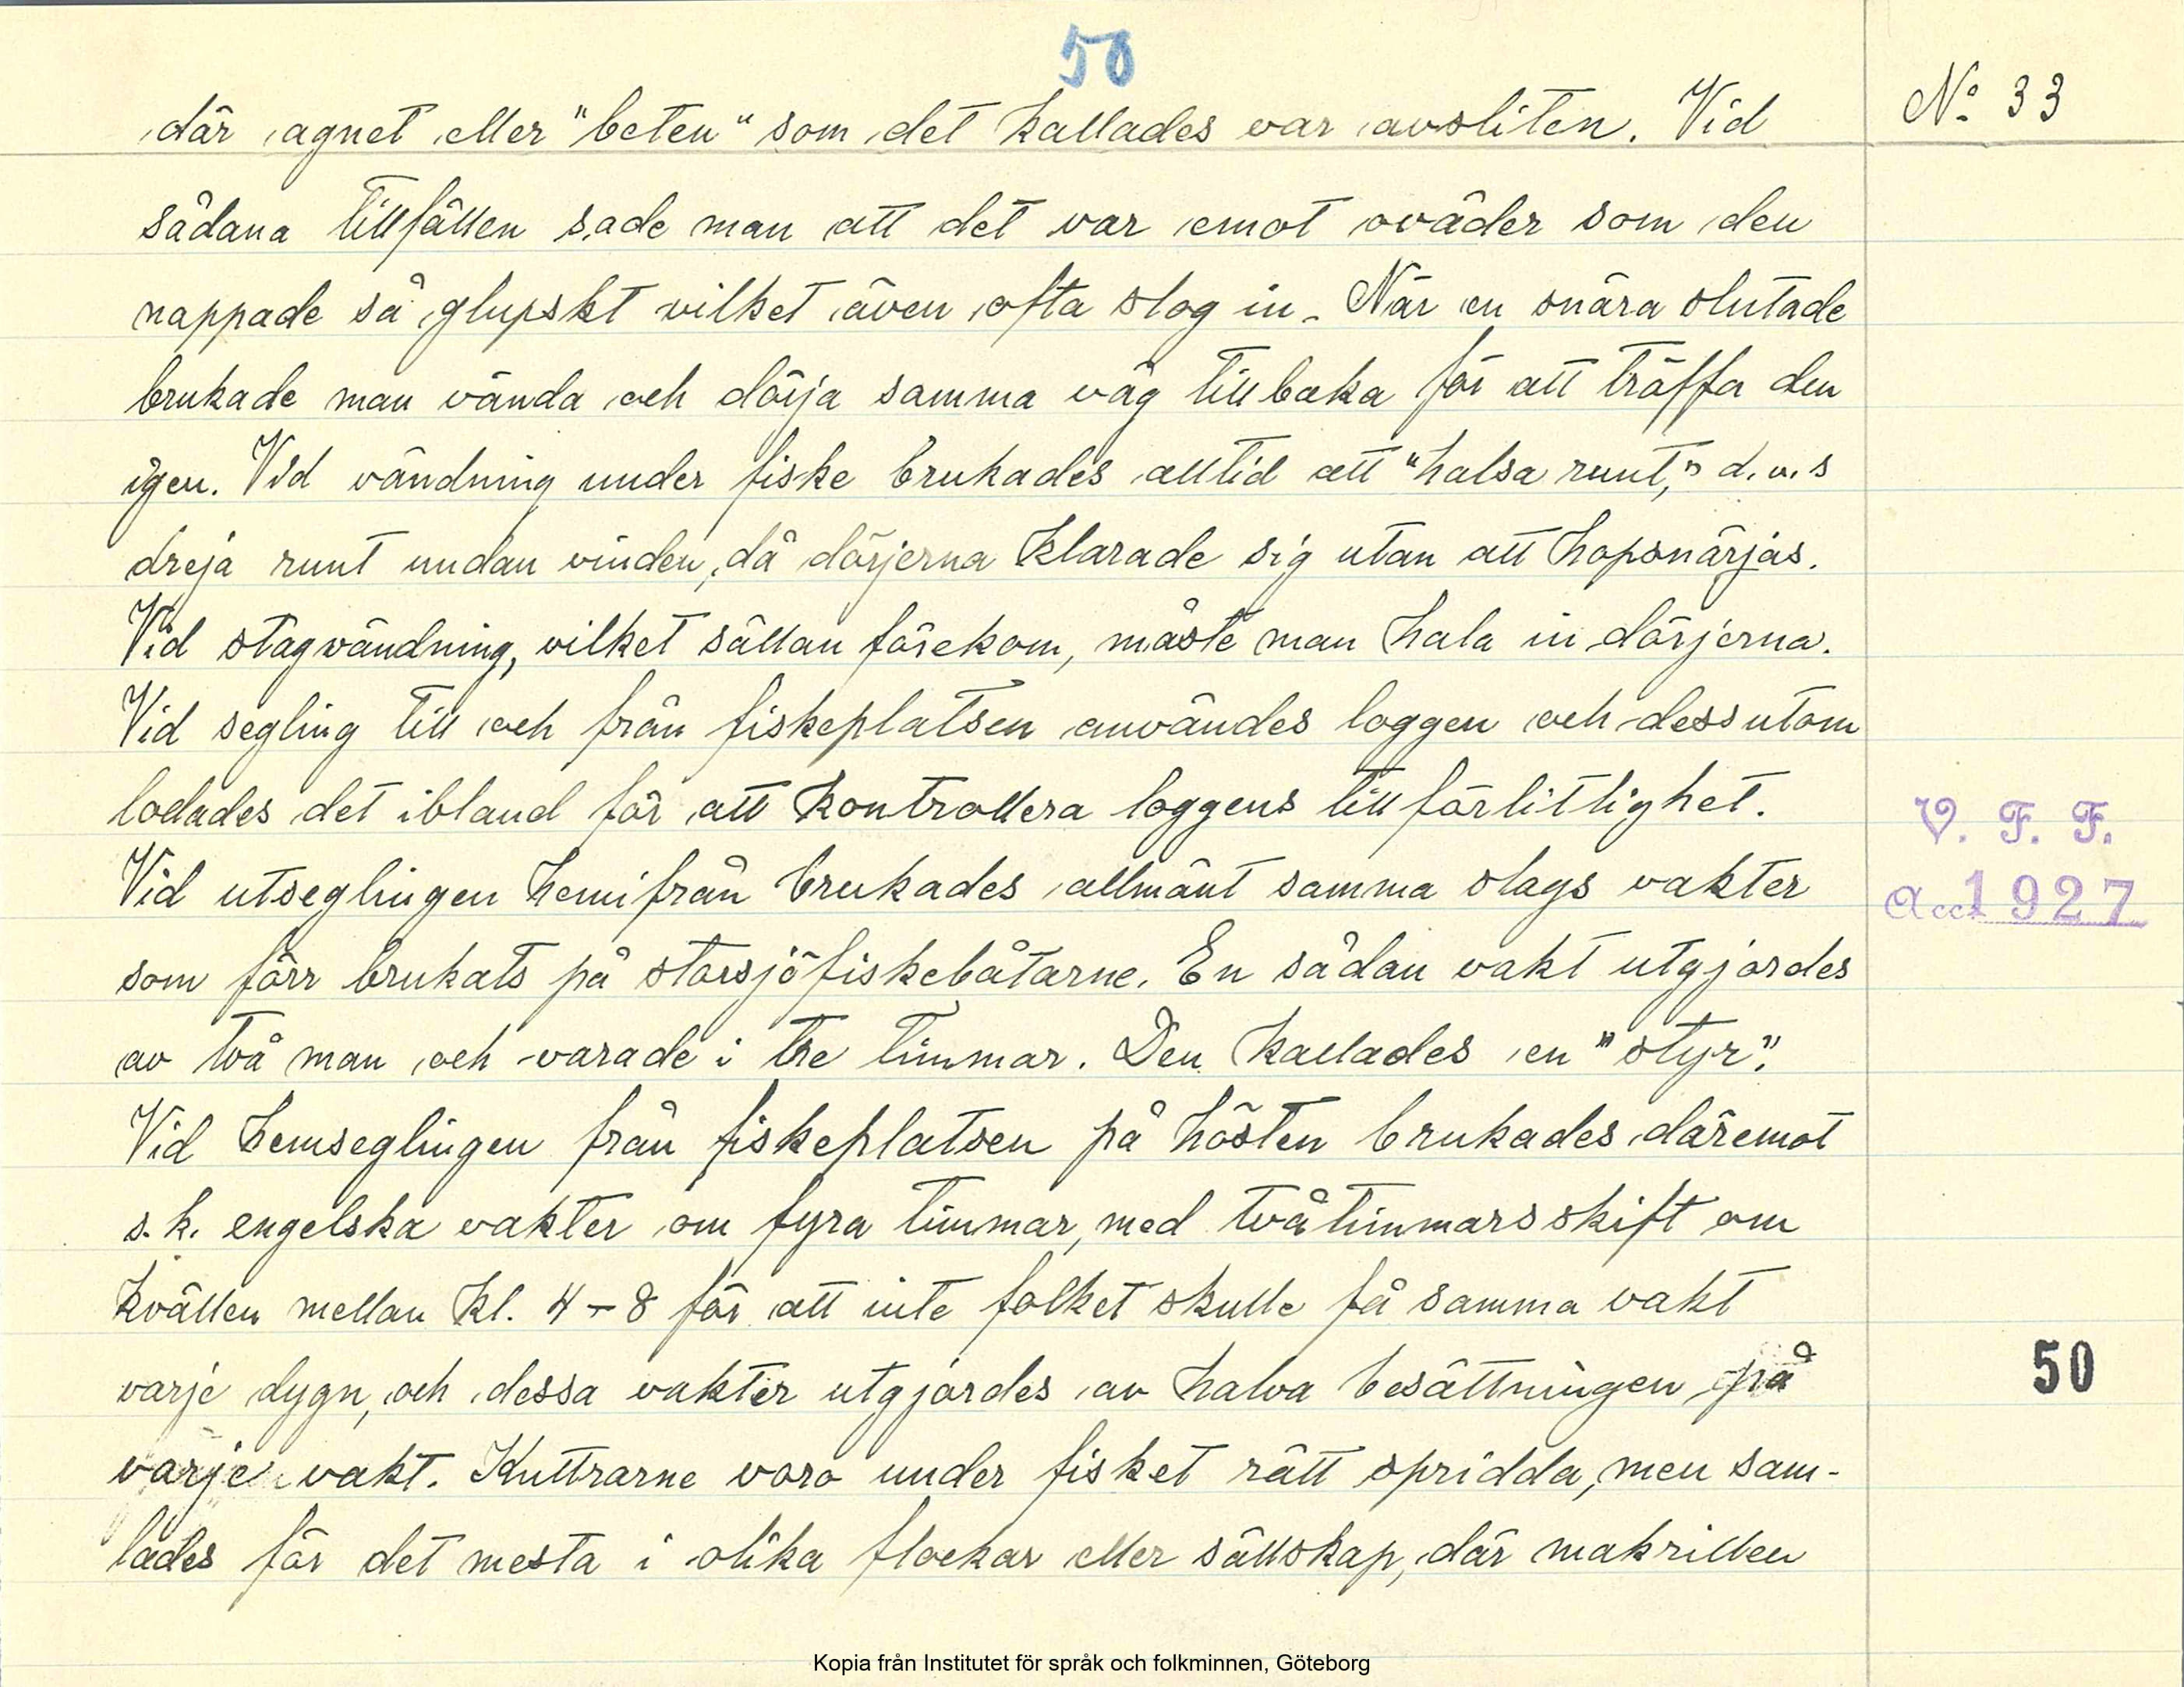 50
N° 33
där agnet eller "beten" som det kallades var avsliten. Vid
sådana tillfällen sade man att det var emot oväder som den
nappade så glupskt vilket även ofta slog in. När en snära slutade
brukade man vända och dörja samma väg tillbaka för att träffa den
igen. Vid vändning under fiske brukades alltid att "halsa runt," d.v.s
dreja runt undan vinden, då dörjerna klarade sig utan att hopsnärjas.
Vid stagvändning, vilket sällan förekom, måste man hala in dörjerna.
Vid segling till och från fiskeplatsen användes loggen och dessutom
lodades det ibland för att kontrollera loggens tillförlitlighet.
V. F. F.
Vid utseglingen hemifrån brukades allmänt samma slags vakter
Acc 1927
som förr brukats på storsjöfiskebåtarne. En sådan vakt utgjordes
av två man och varade i tre timmar. Den kallades en "styr".
Vid hemseglingen från fiskeplatsen på hösten brukades däremot
s.k. engelska vakter om fyra timmar, med tvåtimmarsskift om
kvällen mellan kl. 4-8 för att inte folket skulle få samma vakt
varje dygn, och dessa vakter utgjordes av halva besättningen på
50
varje vakt. Kuttrarne voro under fisket rätt spridda, men sam-
lades för det mesta i olika flockar eller sällskap, där makrillen
Kopia från Institutet för språk och folkminnen, Göteborg